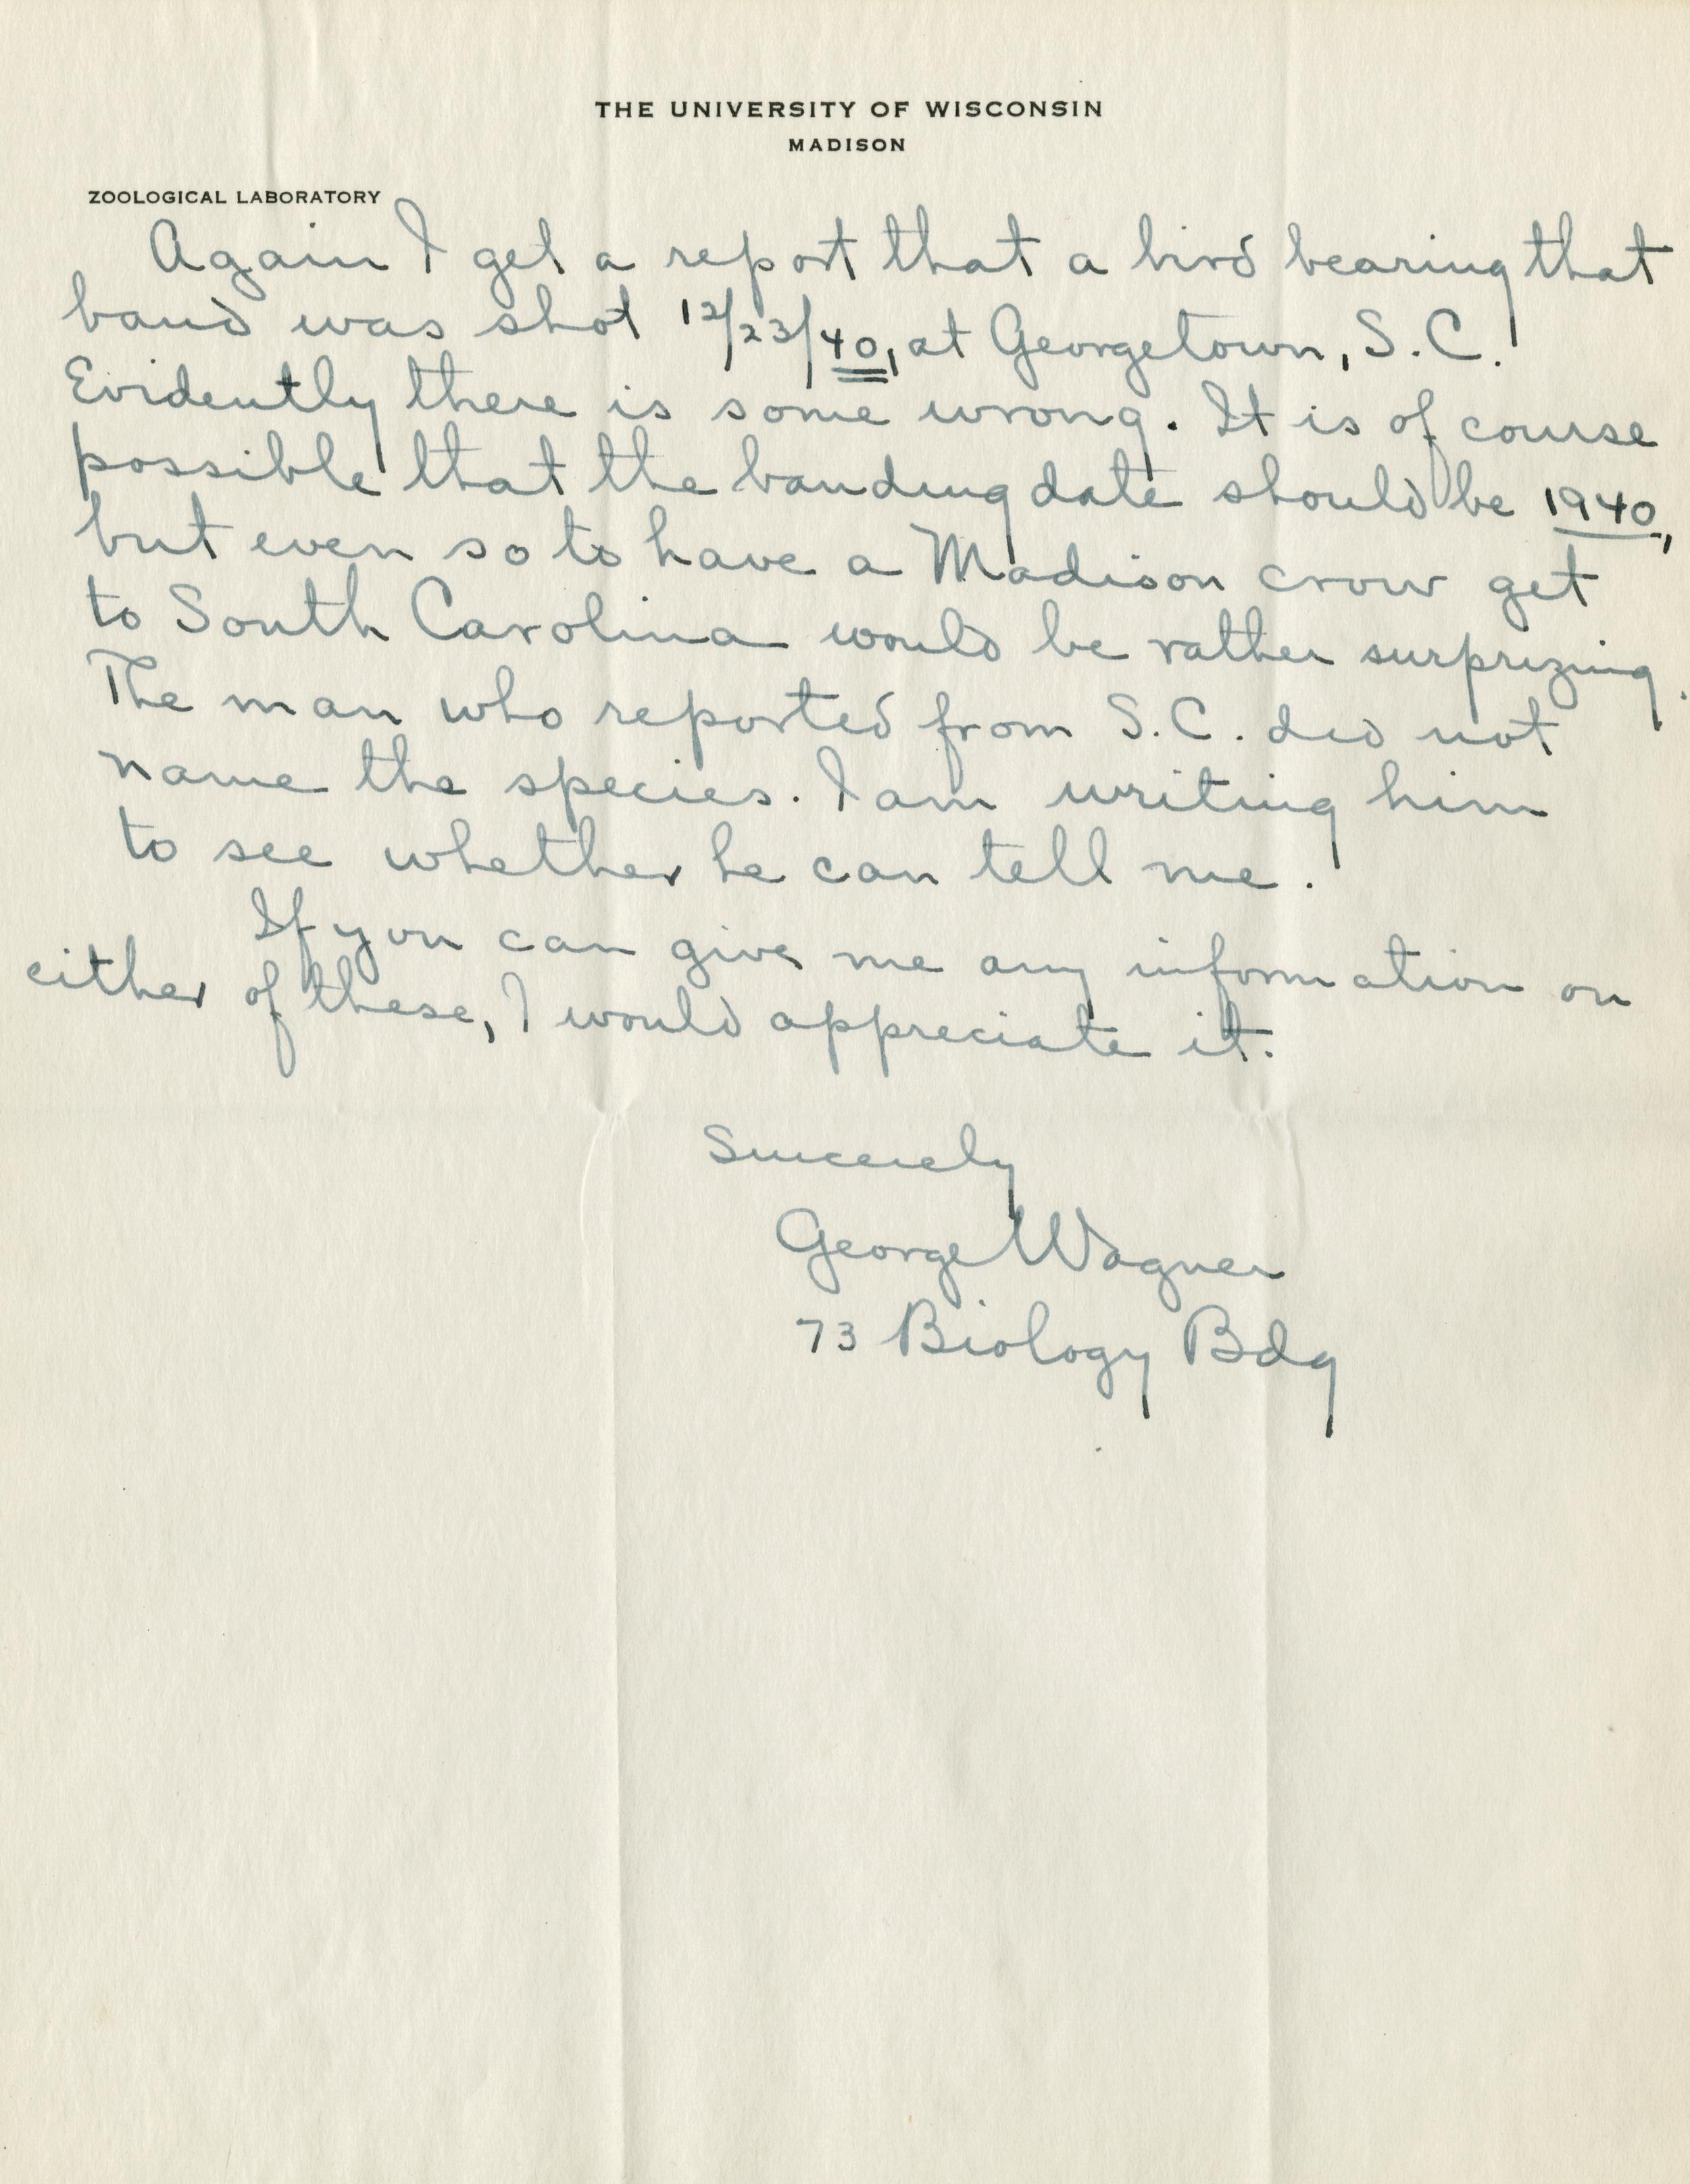 THE UNIVERSITY OF WISCONSIN
MADISON
ZOOLOGICAL LABORATORY
Again I get a report that a bird bearing that
band was shot 12/23/40, at Georgetown, S.C.
Evidently there is some wrong. It is of course
possible that the banding date should be 1940,
but even so to have a Madison crow get
to South Carolina would be rather surprizing.
The man who reported from S.C. did not
name the species. I am writing him
to see whether he can tell me.
If you can give me any information on
either of these, I would appreciate it.
Sincerely
George Wagner
73 Biology Bdg